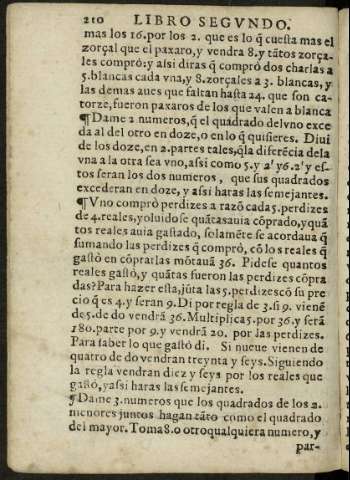 210 LIBRO SEGVNDO.
mas los 16. por los 2. que es lo q̃ cuesta mas el
zorçal que el paxaro, y vendra 8. y tãtos zorça-
les comprò: y aſsi diras q̃ comprò dos charlas a
5. blancas cada vna, y 8. zorçales a 3. blancas, y
las demas aues que faltan haſta 24. que ſon ca-
torze, fueron paxaros de los que valen a blanca
¶ Dame 2 numeros, q̃ el quadrado del vno exce
da al del otro en doze, o en lo q̃ quiſieres. Diui
de los doze, en 2. partes tales, q̃ la diferẽcia de la
vna a la otra ſea vno, aſsi como 5. y 2¹ y 6. 2¹ y eſ-
tos ſeran los dos numeros, que ſus quadrados
excederan en doze, y aſsi haras las ſemejantes.
¶ Vno comprò perdizes a razõ cada 5. perdizes
de 4. reales, y oluidoſe quãtas auia cõprado, y quã
tos reales auia gaſtado, ſolamẽte ſe acordaua q̃
ſumando las perdizes q̃ comprò, cõ los reales q̃
gaſtò en cõprarlas mõtauã 36. Pideſe quantos
reales gaſtò, y quãtas fueron las perdizes cõpra
das? Para hazer eſta, jũta las 5. perdizes cõ ſu pre
cio q̃ es 4. y ſeran 9. Di por regla de 3. ſi 9. vienẽ
de 5. de do vendrã 36. Multiplica 5. por 36. y ſerã
180. parte por 9. y vendrã 20. por las perdizes.
Para ſaber lo que gaſtò di. Si nueue vienen de
quatro de do vendran treynta y ſeys. Siguiendo
la regla vendran diez y ſeys por los reales que
gaſtò, y aſsi haras las ſemejantes.
¶ Dame 3. numeros que los quadrados de los 2.
menores juntos hagan tãto como el quadrado
del mayor. Toma 8. o otro qualquiera numero, y
par-